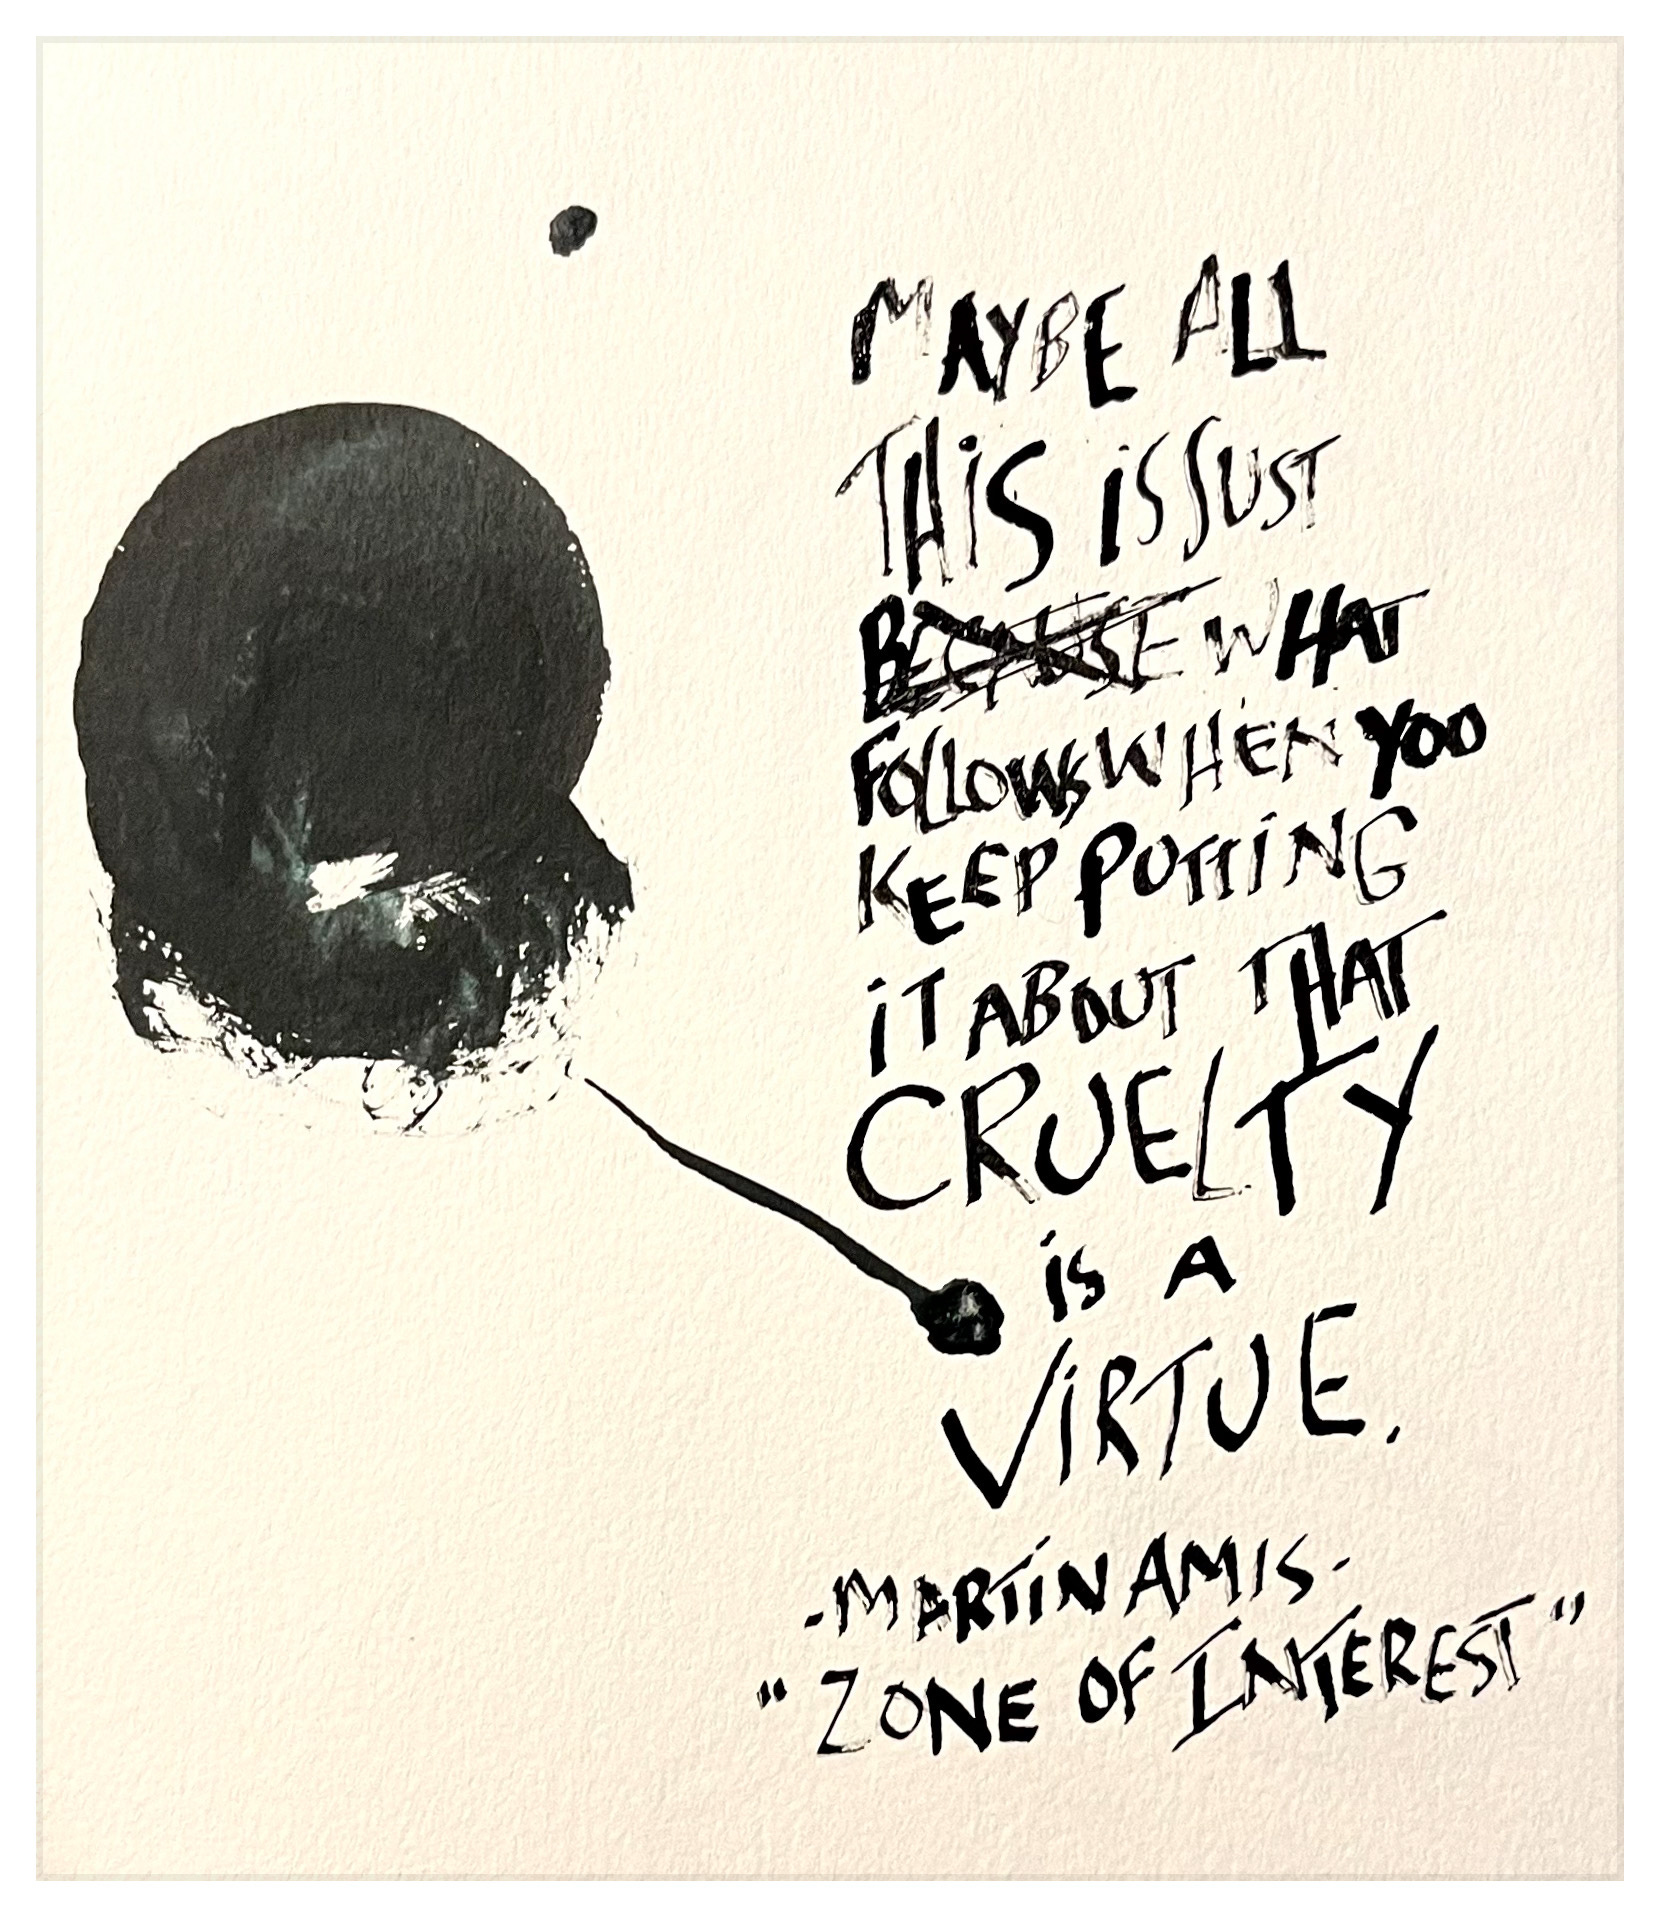 MAYBE ALL
THIS IS JUST
BECAUSE WHAT
FOLLOWS WHEN YOU
KEEP PUTTING
IT ABOUT THAT
CRUELTY
IS A
VIRTUE.
-MARTIN AMIS-
"ZONE OF INTEREST"